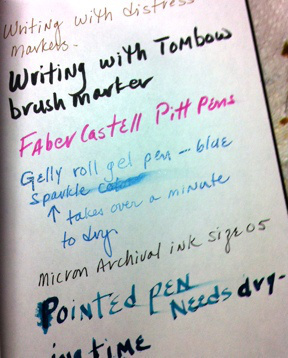 Writing with distress
markers.
Writing with Tombow
brush marker
Faber Castell Pitt Pens
Gelly roll gel pen -- blue
sparkle
↑ takes over a minute
to dry.
Micron Archival ink size 05
Pointed pen
Needs dry-
ing time